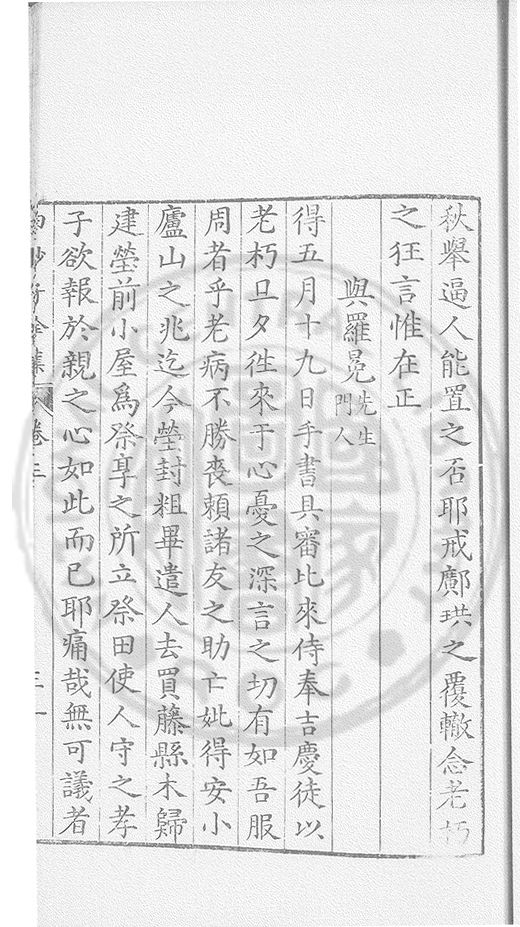 秋舉逼人能置之否耶戒鄺珙之覆轍念老朽
之狂言惟在正
與羅冕先生門人
得五月十九日手書具審比來侍奉吉慶徒以
老朽旦夕徃來于心憂之深言之切有如吾服
周者乎老病不勝喪賴諸友之助亡妣得安小
廬山之兆迄今塋封粗畢遣人去買藤縣木歸
建塋前小屋爲祭享之所立祭田使人守之孝
子欲報於親之心如此而已耶痛哉無可議者
卷三